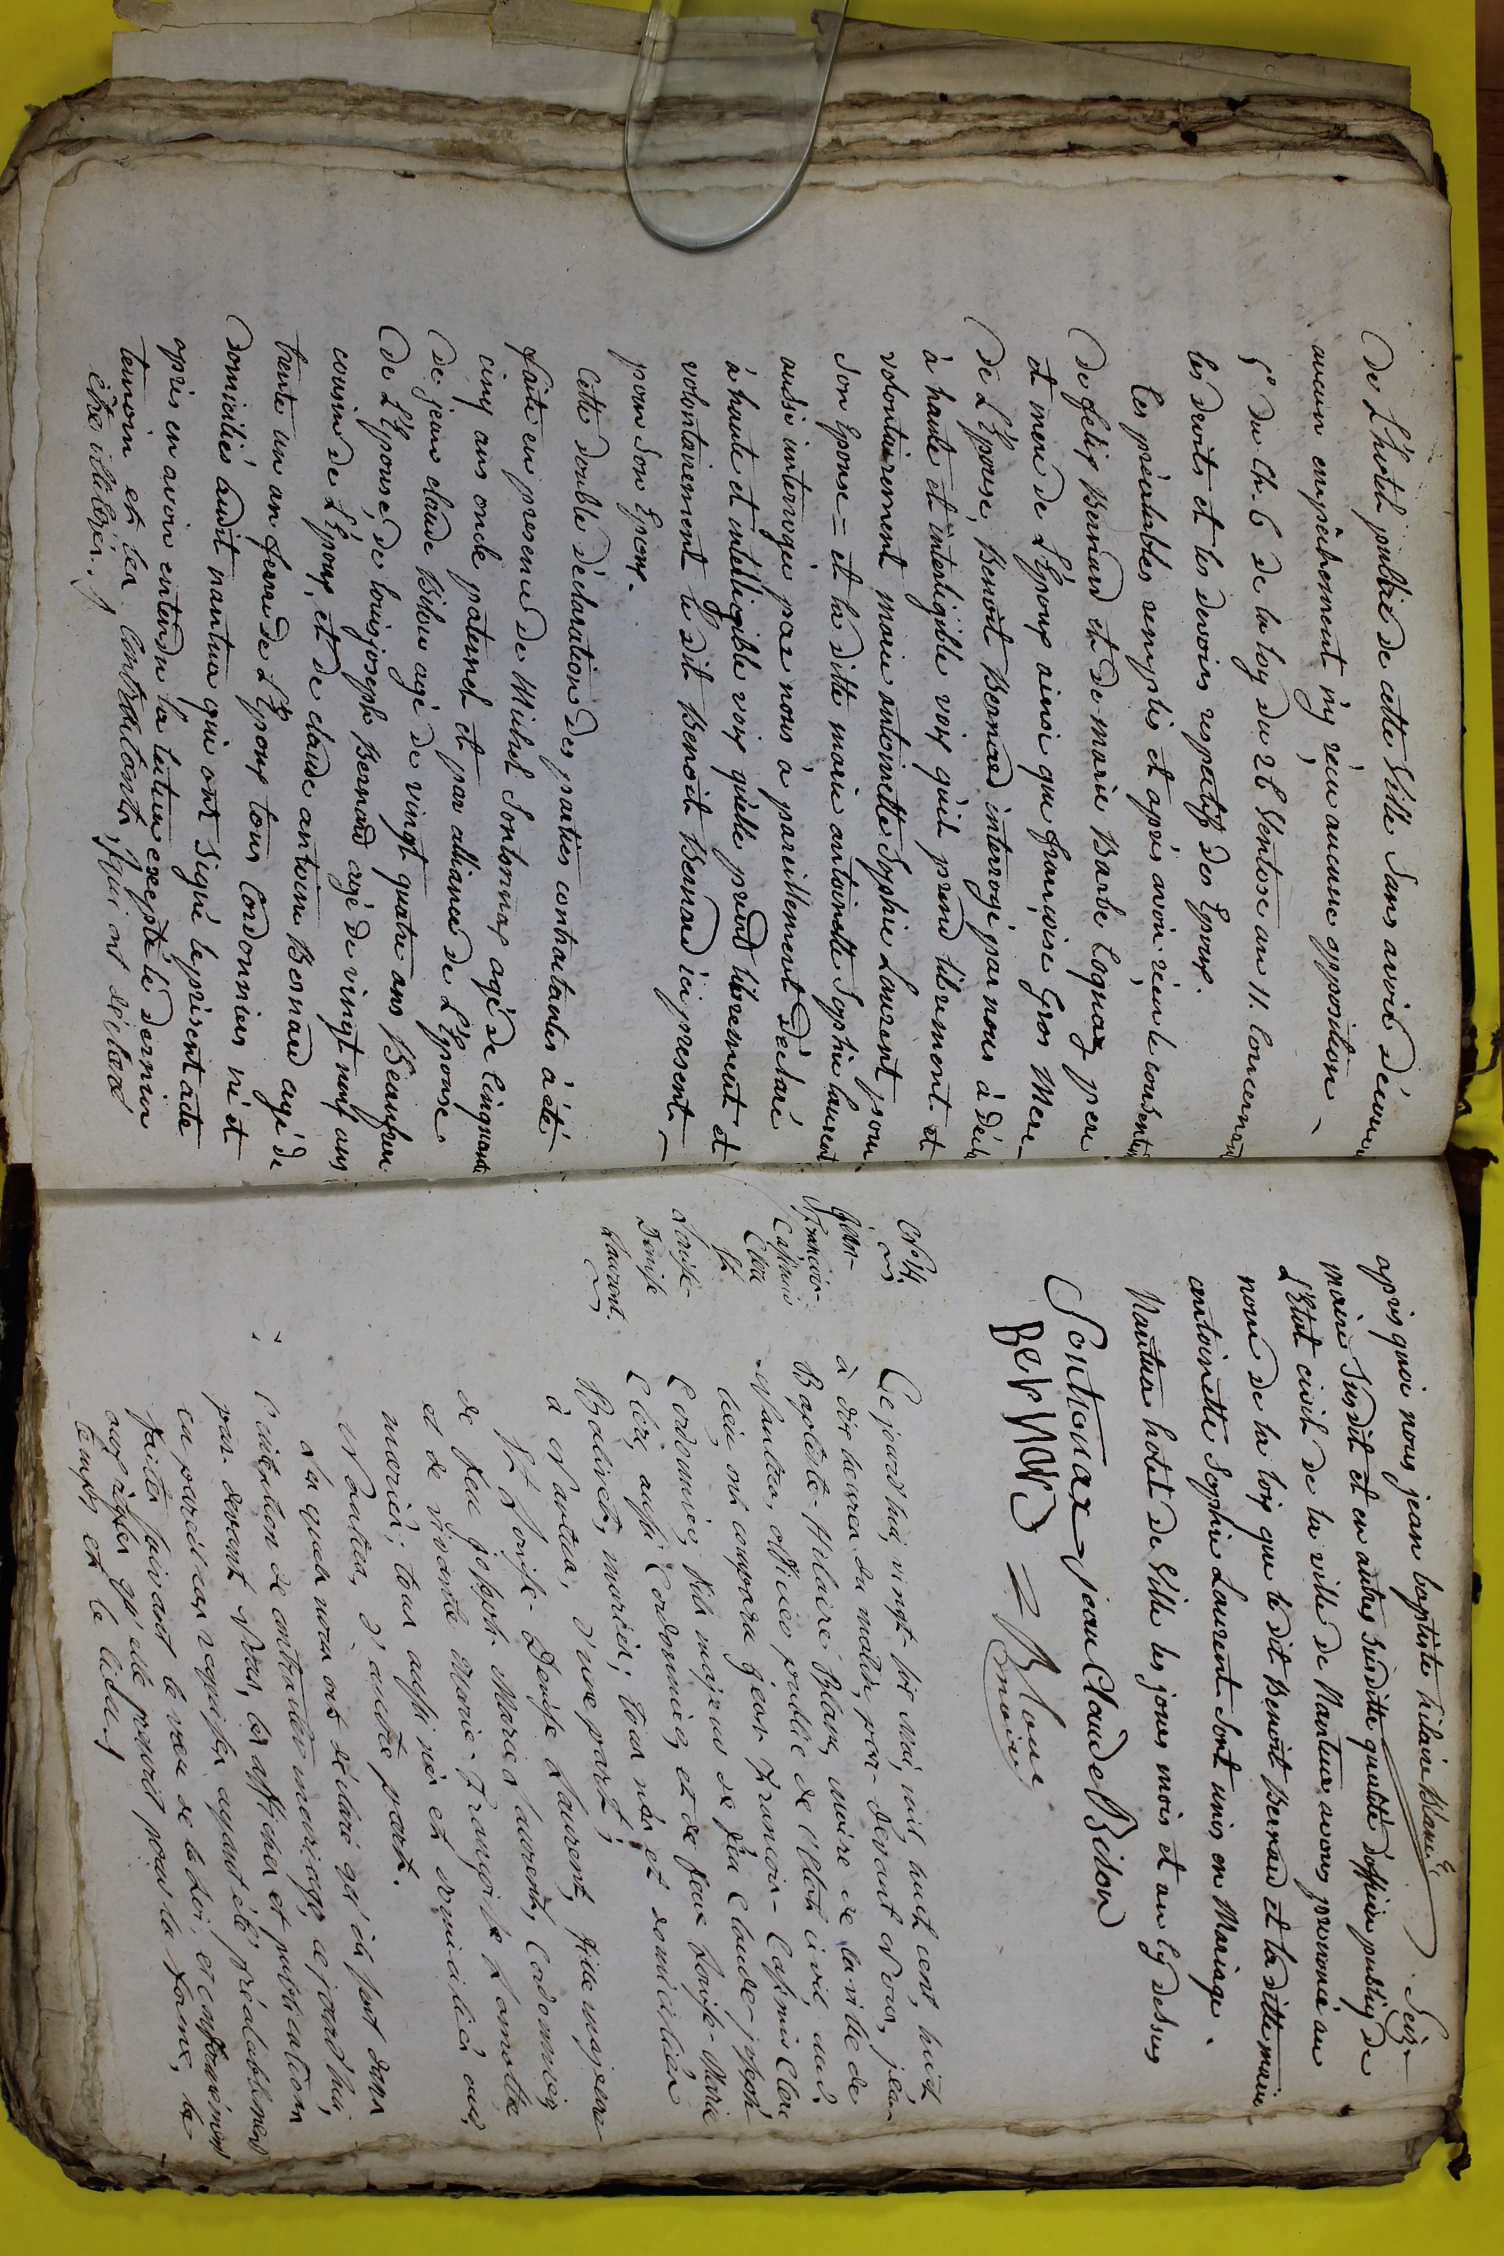 De L'hotel public de cette Ville Sans avoir d'écouvert
aucun empêchement n'y réçu aucune opposition –
5º du Ch. 6 de la loy du 26 Ventose an 11. Concernant
les droits et les devoirs respectifs des Epoux.
Les préalables remplis et après avoir réçu le consentement
de felix Bernard et de marie Barbe Coquaz pere
et mere de L'Epoux ainsi que françoise Gros Mere
de L'Epouse, Benoit Bernard interrogé par nous à déclaré
à haute et intelligible voix qu'il prend librement et
volontairement marie antoinette Sophie Laurent pour
son Epouse = et la ditte marie antoinette Sophie Laurent
aussi interrogée par nous à pareillement déclaré
à haute et intelligible voix qu'elle prend librement et
volontairement le dit Benoit Bernard ici présent –
pour son Epoux.
Cette double déclaration des parties contractantes à été
faite en presence de Michel Sontonax agé de Cinquante
cinq ans oncle paternel et par alliance de L'Epouse
de jean claude Bilon agé de vingt quatre ans Beaufrere
de L'Epouse, de louis joseph Bernard agé de vingt neuf ans
cousin de L'Epoux, et de claude antoine Bernard agé de
trente un an frere de L'Epoux tous Cordonniers né et
domiciliés audit nantua qui ont signé le présent acte
après en avoir entendu la lecture excepté le dernier
temoin et les Contractants, qui ont déclaré
être illiterés.
Seize
après quoi nous jean baptiste hilaire Blanc
maire Susdit et en autre susditte qualité d'officier publiq de
L'Etat civil de la ville de Nantua avons prononcé au
nom de la loix que le dit Benoit Bernard et la ditte marie
antoinette Sophie Laurent Sont unis en Mariage.
Nantua hotel de Ville les jours mois et an Cy dessus
Sontonax jean Claude Bilon
Bernard = Blanc
maire
Nº 4.
jean-
francois-
Casimir
Clere
et
Louise-
Denise
Laurent.
Ce jourd'hui, vingt-six mai, mil huit cent huit
à dix heures du matin, par-devant Nous, jean
Baptiste-hilaire Blanc, maire de la ville de
Nantua, officier public de l'etat civil, au d.
lieu, ont comparu jean-francois-Casimir Clere
Cordonnier, fils majeur de feu Claude-joseph
Clere, aussi Cordonnier, et de feue Louise-Marie
Balivet, mariés; tous nés et domiciliés
à Nantua, d'une part;
Et Louise-Denise Laurent, fille majeure
de feu joseph-Marie Laurent, Cordonnier,
et de vivante Marie-françoise Lamotte
mariés; tous aussi nés et domiciliés aud.
Nantua, d'autre part.
Lesquels nous ont déclaré qu'ils sont dans
l'intention de contracter mariage, ce jourd'hui,
par-devant Nous, les affiches et publications
en pareil cas requises ayant été préalablement
faites suivant le vœu de la Loi, et conformément
aux règles qu'elle prescrit pour la forme, le
temps et le lieu.